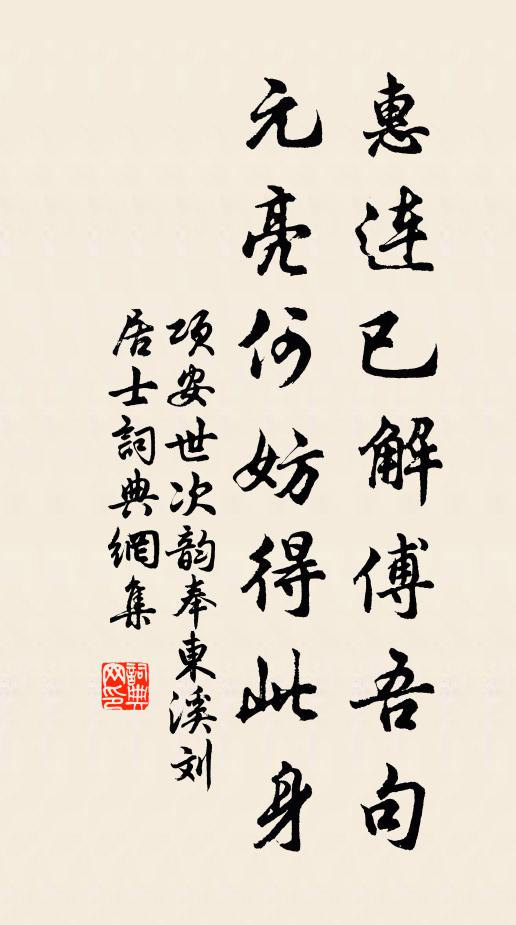 惠連已解傅吾句
元亮何妨得此身
項安世次韵奉東溪刘
居士詞典網集
詞典網印